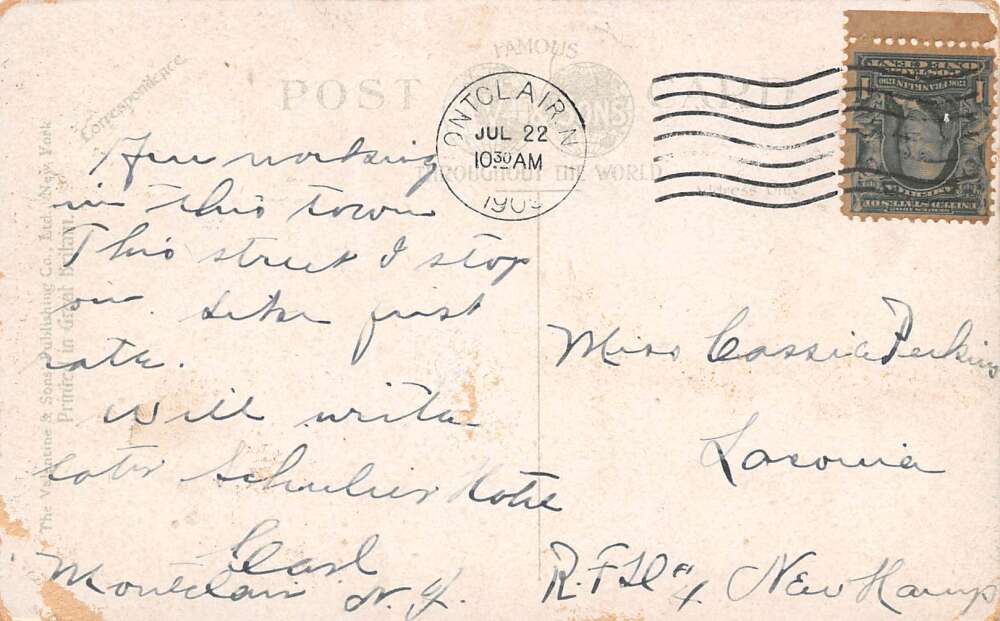 FAMOUS
POST CARD
VALENTINE & SONS
THROUGHOUT THE WORLD
Address Only
Correspondence.
The Valentine & Sons Publishing Co. Ltd. New York
Printed in Great Britain.
ONTCLAIR, N
JUL 22
10 30 AM
190
ONE CENT
POSTAGE
1706 FRANKLIN 1790
1 1
AMERICA
UNITED STATES OF
SERIES 1902
Am working
in this town
This street I stop
on. Like first
rate.
Will write
later Hotel
Carl
Montclair N.J.
Miss Cassie Perkins
Laconia
R.F.D #4 New Hamp